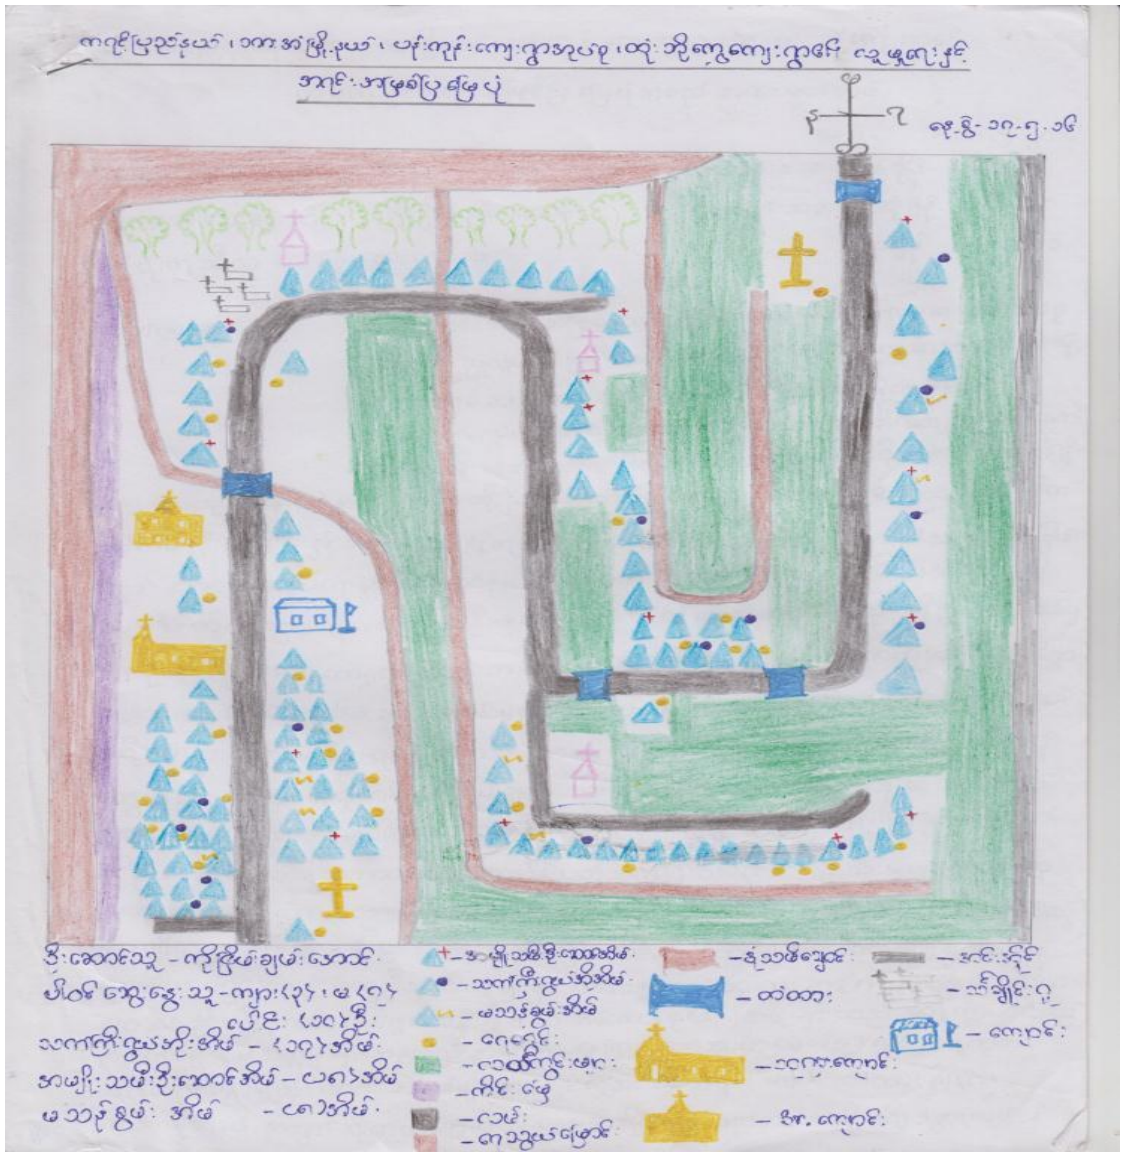 ကရင်ပြည်နယ်၊ ဘားအံမြို့နယ်၊ ပန်းကုန်းကျေးရွာအုပ်စု၊ ကျေးရွာ၏ လူမှုရေးနှင့်
အရင်းအမြစ်ပြမြေပုံ
န
၇
နေ့စွဲ-၁၇.၅.၁၆
ဦးဆောင်သူ - ကိုငြိမ်းချမ်းအောင်
ပါဝင်ဆွေးနွေးသူ-ကျား(၃)၊ မ(၇)
ပေါင်း (၁၀)ဦး
သက်ကြီးရွယ်အိုးအိမ် - (၁၇)အိမ်
အမျိုးသမီးဦးဆောင်အိမ် - အိမ်
မသန်စွမ်းအိမ် - အိမ်
-အမျိုးသမီးဦးဆောင်အိမ်
-သက်ကြီးရွယ်အိုအိမ်
-မသန်စွမ်းအိမ်
-ရေတွင်း
-လယ်ကွင်းများ
-ကိုင်းမြေ
-လမ်း
-ရေသွယ်မြောင်း
-တံတား
-သင်္ချိုင်း
-ကျောင်း
-ဘုရားကျောင်း